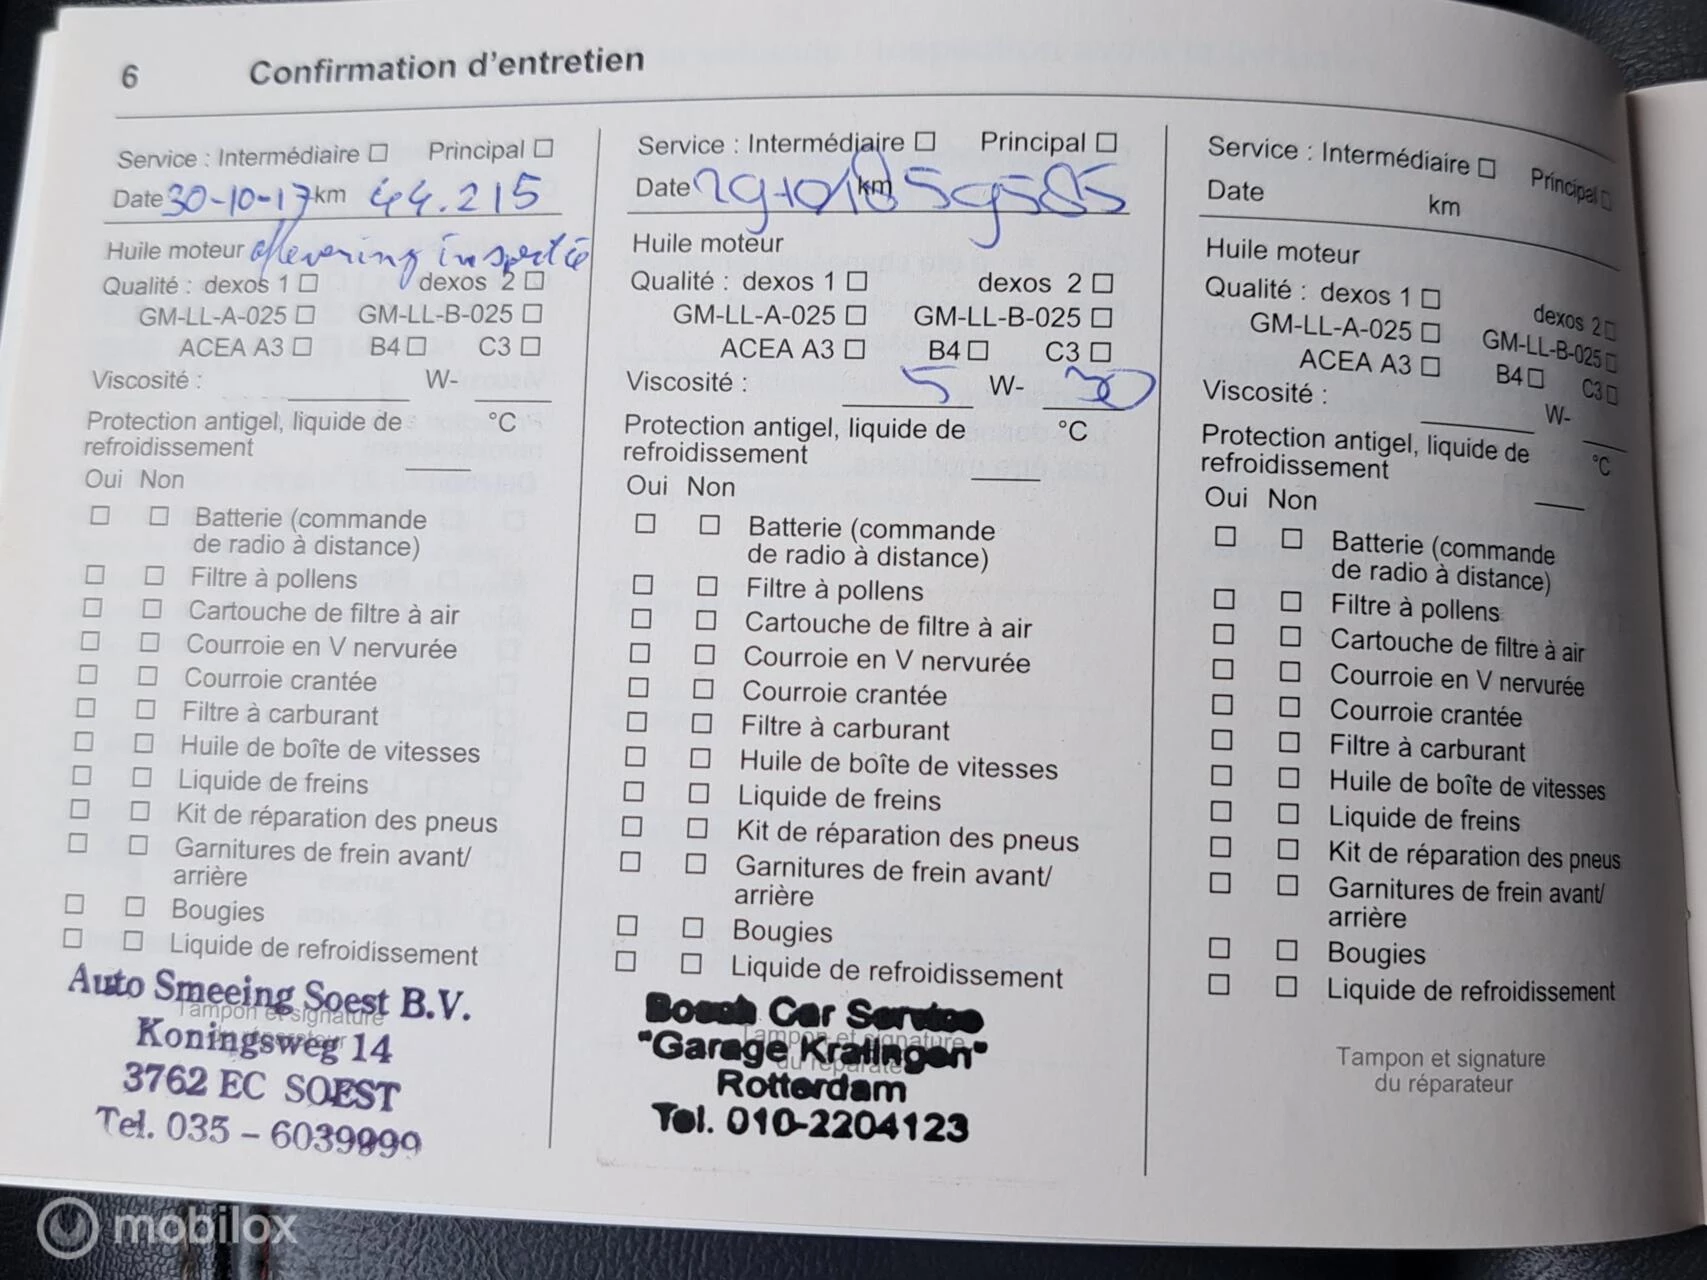 6 Confirmation d'entretien
Service : Intermédiaire ☐ Principal ☐
Date 30-10-17 km 44.215
Huile moteur aflevering inspectie
Qualité : dexos 1 ☐ dexos 2 ☐
GM-LL-A-025 ☐ GM-LL-B-025 ☐
ACEA A3 ☐ B4 ☐ C3 ☐
Viscosité : W-
Protection antigel, liquide de °C
refroidissement
Oui Non
☐ ☐ Batterie (commande
de radio à distance)
☐ ☐ Filtre à pollens
☐ ☐ Cartouche de filtre à air
☐ ☐ Courroie en V nervurée
☐ ☐ Courroie crantée
☐ ☐ Filtre à carburant
☐ ☐ Huile de boîte de vitesses
☐ ☐ Liquide de freins
☐ ☐ Kit de réparation des pneus
☐ ☐ Garnitures de frein avant/
arrière
☐ ☐ Bougies
☐ ☐ Liquide de refroidissement
Tampon et signature
du réparateur
Auto Smeeing Soest B.V.
Koningsweg 14
3762 EC SOEST
Tel. 035 - 6039999
Service : Intermédiaire ☐ Principal ☐
Date km 59585
Huile moteur
Qualité : dexos 1 ☐ dexos 2 ☐
GM-LL-A-025 ☐ GM-LL-B-025 ☐
ACEA A3 ☐ B4 ☐ C3 ☐
Viscosité : 5 W- 30
Protection antigel, liquide de °C
refroidissement
Oui Non
☐ ☐ Batterie (commande
de radio à distance)
☐ ☐ Filtre à pollens
☐ ☐ Cartouche de filtre à air
☐ ☐ Courroie en V nervurée
☐ ☐ Courroie crantée
☐ ☐ Filtre à carburant
☐ ☐ Huile de boîte de vitesses
☐ ☐ Liquide de freins
☐ ☐ Kit de réparation des pneus
☐ ☐ Garnitures de frein avant/
arrière
☐ ☐ Bougies
☐ ☐ Liquide de refroidissement
Tampon et signature
du réparateur
Bosch Car Service
"Garage Kralingen"
Rotterdam
Tel. 010-2204123
Service : Intermédiaire ☐ Principal ☐
Date km
Huile moteur
Qualité : dexos 1 ☐ dexos 2 ☐
GM-LL-A-025 ☐ GM-LL-B-025 ☐
ACEA A3 ☐ B4 ☐ C3 ☐
Viscosité : W-
Protection antigel, liquide de °C
refroidissement
Oui Non
☐ ☐ Batterie (commande
de radio à distance)
☐ ☐ Filtre à pollens
☐ ☐ Cartouche de filtre à air
☐ ☐ Courroie en V nervurée
☐ ☐ Courroie crantée
☐ ☐ Filtre à carburant
☐ ☐ Huile de boîte de vitesses
☐ ☐ Liquide de freins
☐ ☐ Kit de réparation des pneus
☐ ☐ Garnitures de frein avant/
arrière
☐ ☐ Bougies
☐ ☐ Liquide de refroidissement
Tampon et signature
du réparateur
mobilox